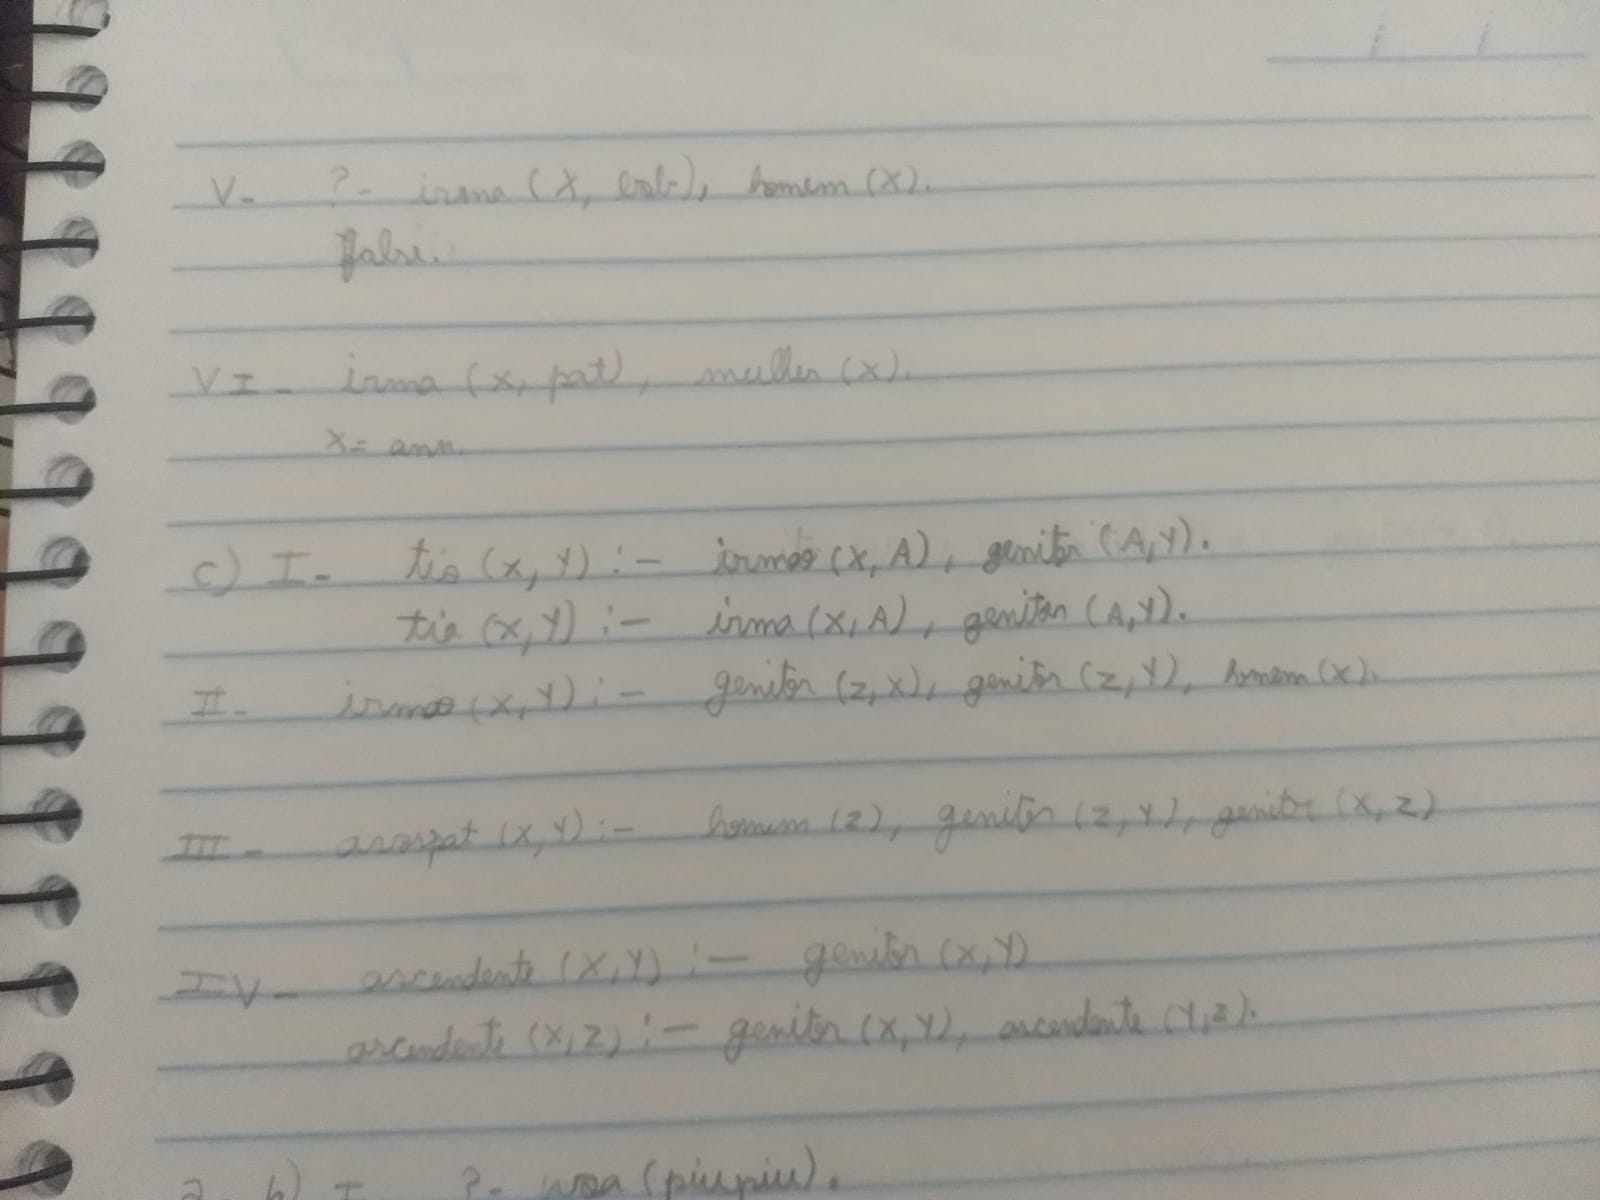 V- ?- irma (X, bob), homem (X).
false.
VI- irma (X, pat), mulher (X).
X= ann.
c) I- tio (X, Y) :- irmao (X, A), genitor (A, Y).
tia (X, Y) :- irma (X, A), genitor (A, Y).
II- irmao (X, Y) :- genitor (Z, X), genitor (Z, Y), homem (X).
III- avospat (X, Y) :- homem (Z), genitor (Z, Y), genitor (X, Z)
IV- ascendente (X, Y) :- genitor (X, Y)
ascendente (X, Z) :- genitor (X, Y), ascendente (Y, Z).
2. b) I ?- voa (piupiu).